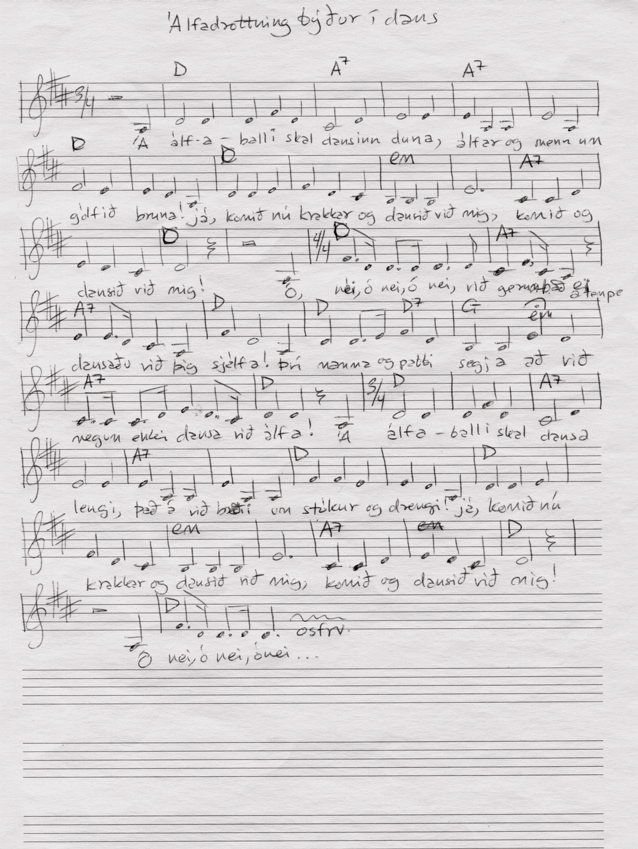 Álfadrottning býður í dans
D A7 A7
3/4
Á álf-a-balli skal dansinn duna, álfar og menn um
D D em A7
gólfið bruna! já, komið nú krakkar og dansið við mig, komið og
D 4/4 D A7
dansið við mig! Ó, nei, ó nei, ó nei, við getum það ei
a tempo
A7 D D D7 G em
dansaðu við þig sjálfa! Því mamma og pabbi segja að við
A7 D 3/4 D A7
megum ekki dansa við álfa! Á álfa-balli skal dansa
A7 D D
lengi, það á við um stúlkur og drengi! já, komið nú
em A7 em D
krakkar og dansið við mig, komið og dansið við mig!
D
osfrv.
Ó nei, ó nei, ó nei...